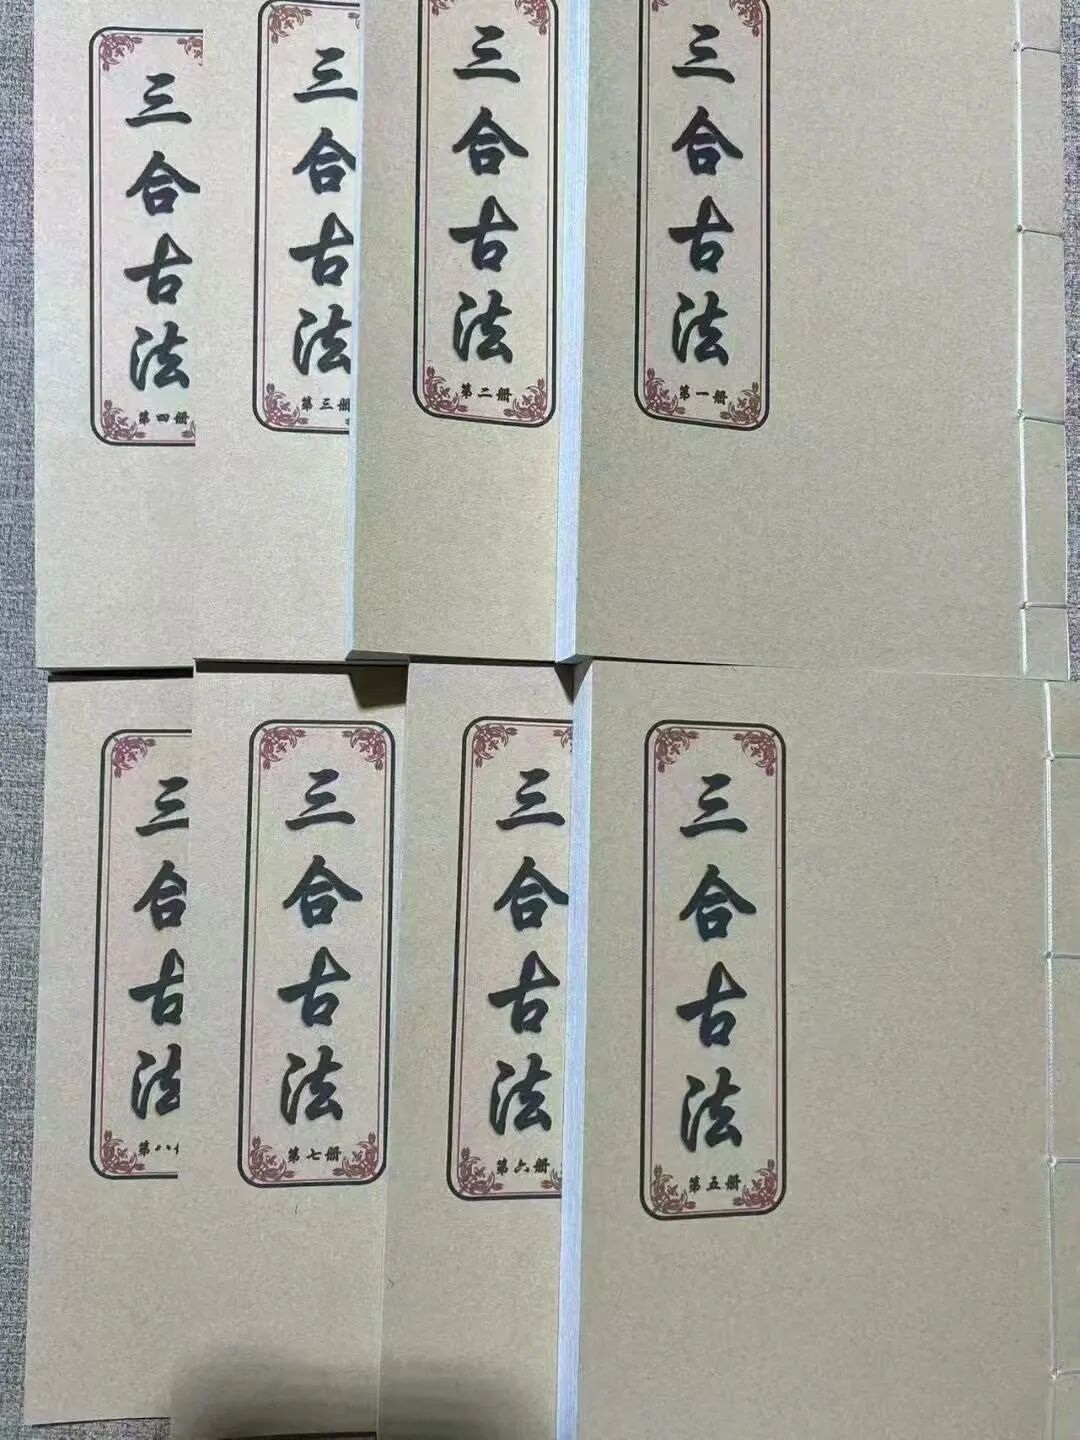 三合古法
第四册
三合古法
第三册
三合古法
第二册
三合古法
第一册
三合古法
第八
三合古法
第七册
三合古法
第六册
三合古法
第五册